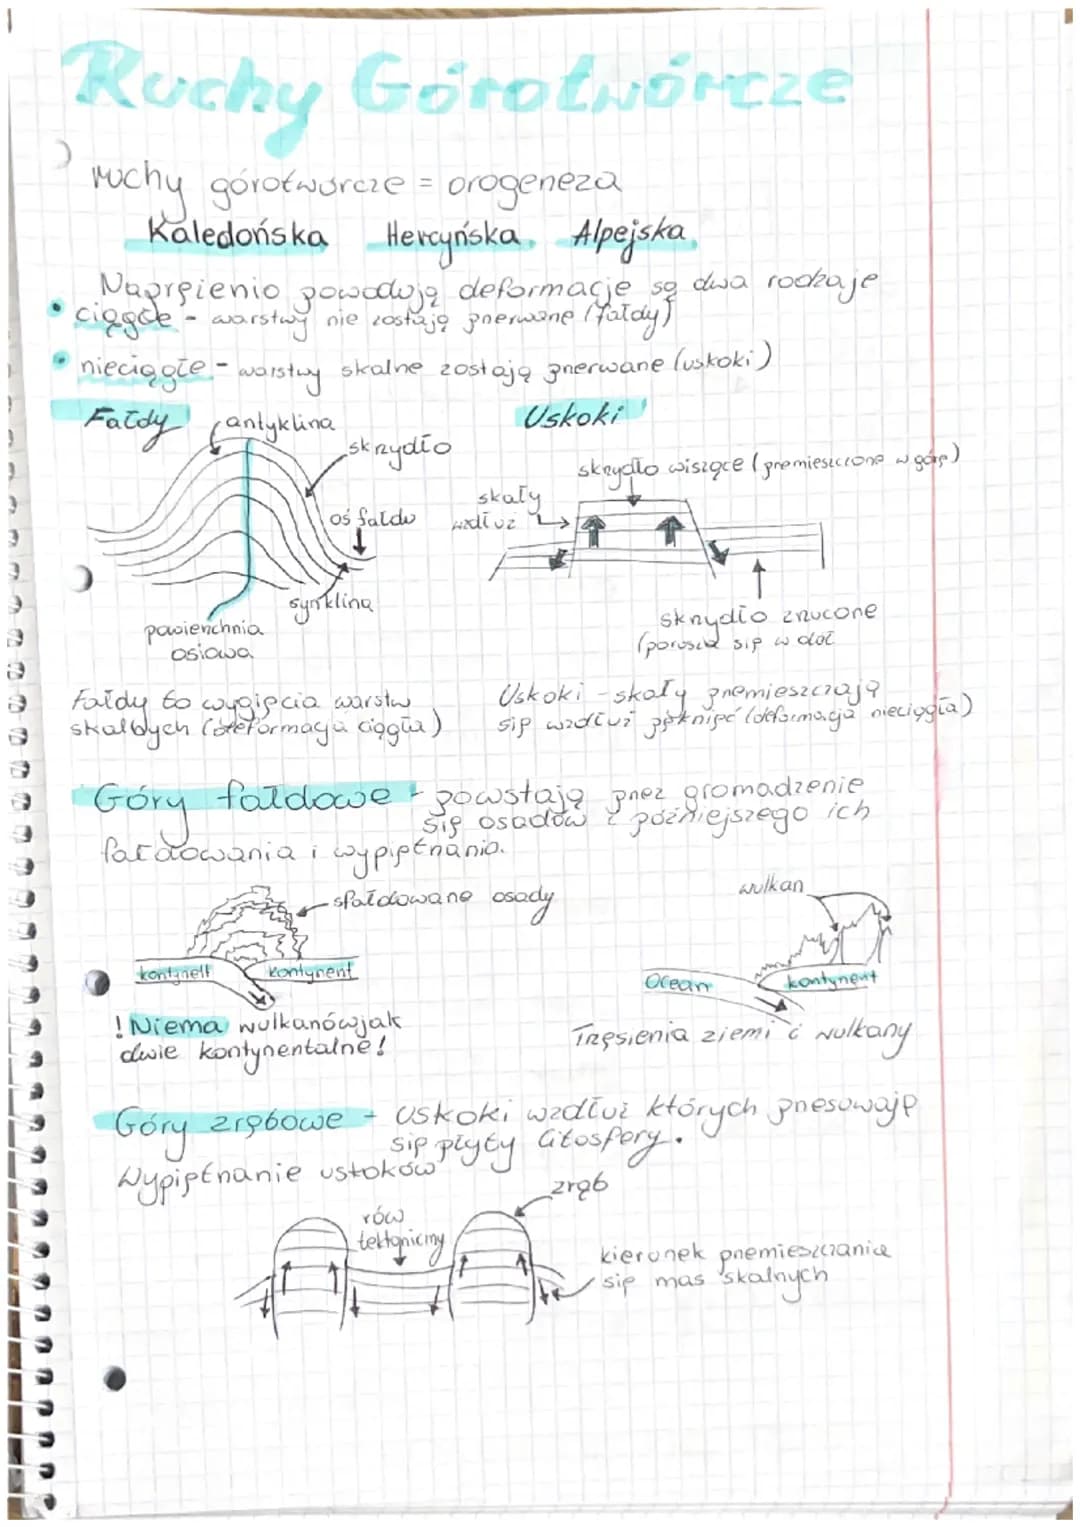 Ruchy Górotwórcze
ruchy górotwórcze = orogeneza
Kaledońska Hercyńska Alpejska
Naprężenia powodują deformacje są dwa rodzaje
• ciągłe - warstwy nie zostają przerwane (fałdy)
• nieciągłe - warstwy skalne zostają przerwane (uskoki)
Fałdy
antyklina
skrzydło
oś fałdu
synklina
powierzchnia
osiowa
Uskoki
skrzydło wiszące (przemieszczone w górę)
skały
wzdłuż
skrzydło zrzucone
(porusza się w dół
Fałdy to wygięcia warstw
skalnych (deformacja ciągła)
Uskoki - skały przemieszczają
się wzdłuż pęknięć (deformacja nieciągła)
Góry fałdowe - powstają przez gromadzenie
się osadów i późniejszego ich
fałdowania i wypiętrzania.
sfałdowane osady
kontynent
kontynent
! Niema wulkanów jak
dwie kontynentalne!
wulkan
Ocean
kontynent
Trzęsienia ziemi i wulkany
Góry zrębowe - uskoki wzdłuż których przesuwaję
się płyty litosfery.
Wypiętrzanie uskoków
rów
tektoniczny
zrąb
kierunek przemieszczania
się mas skalnych